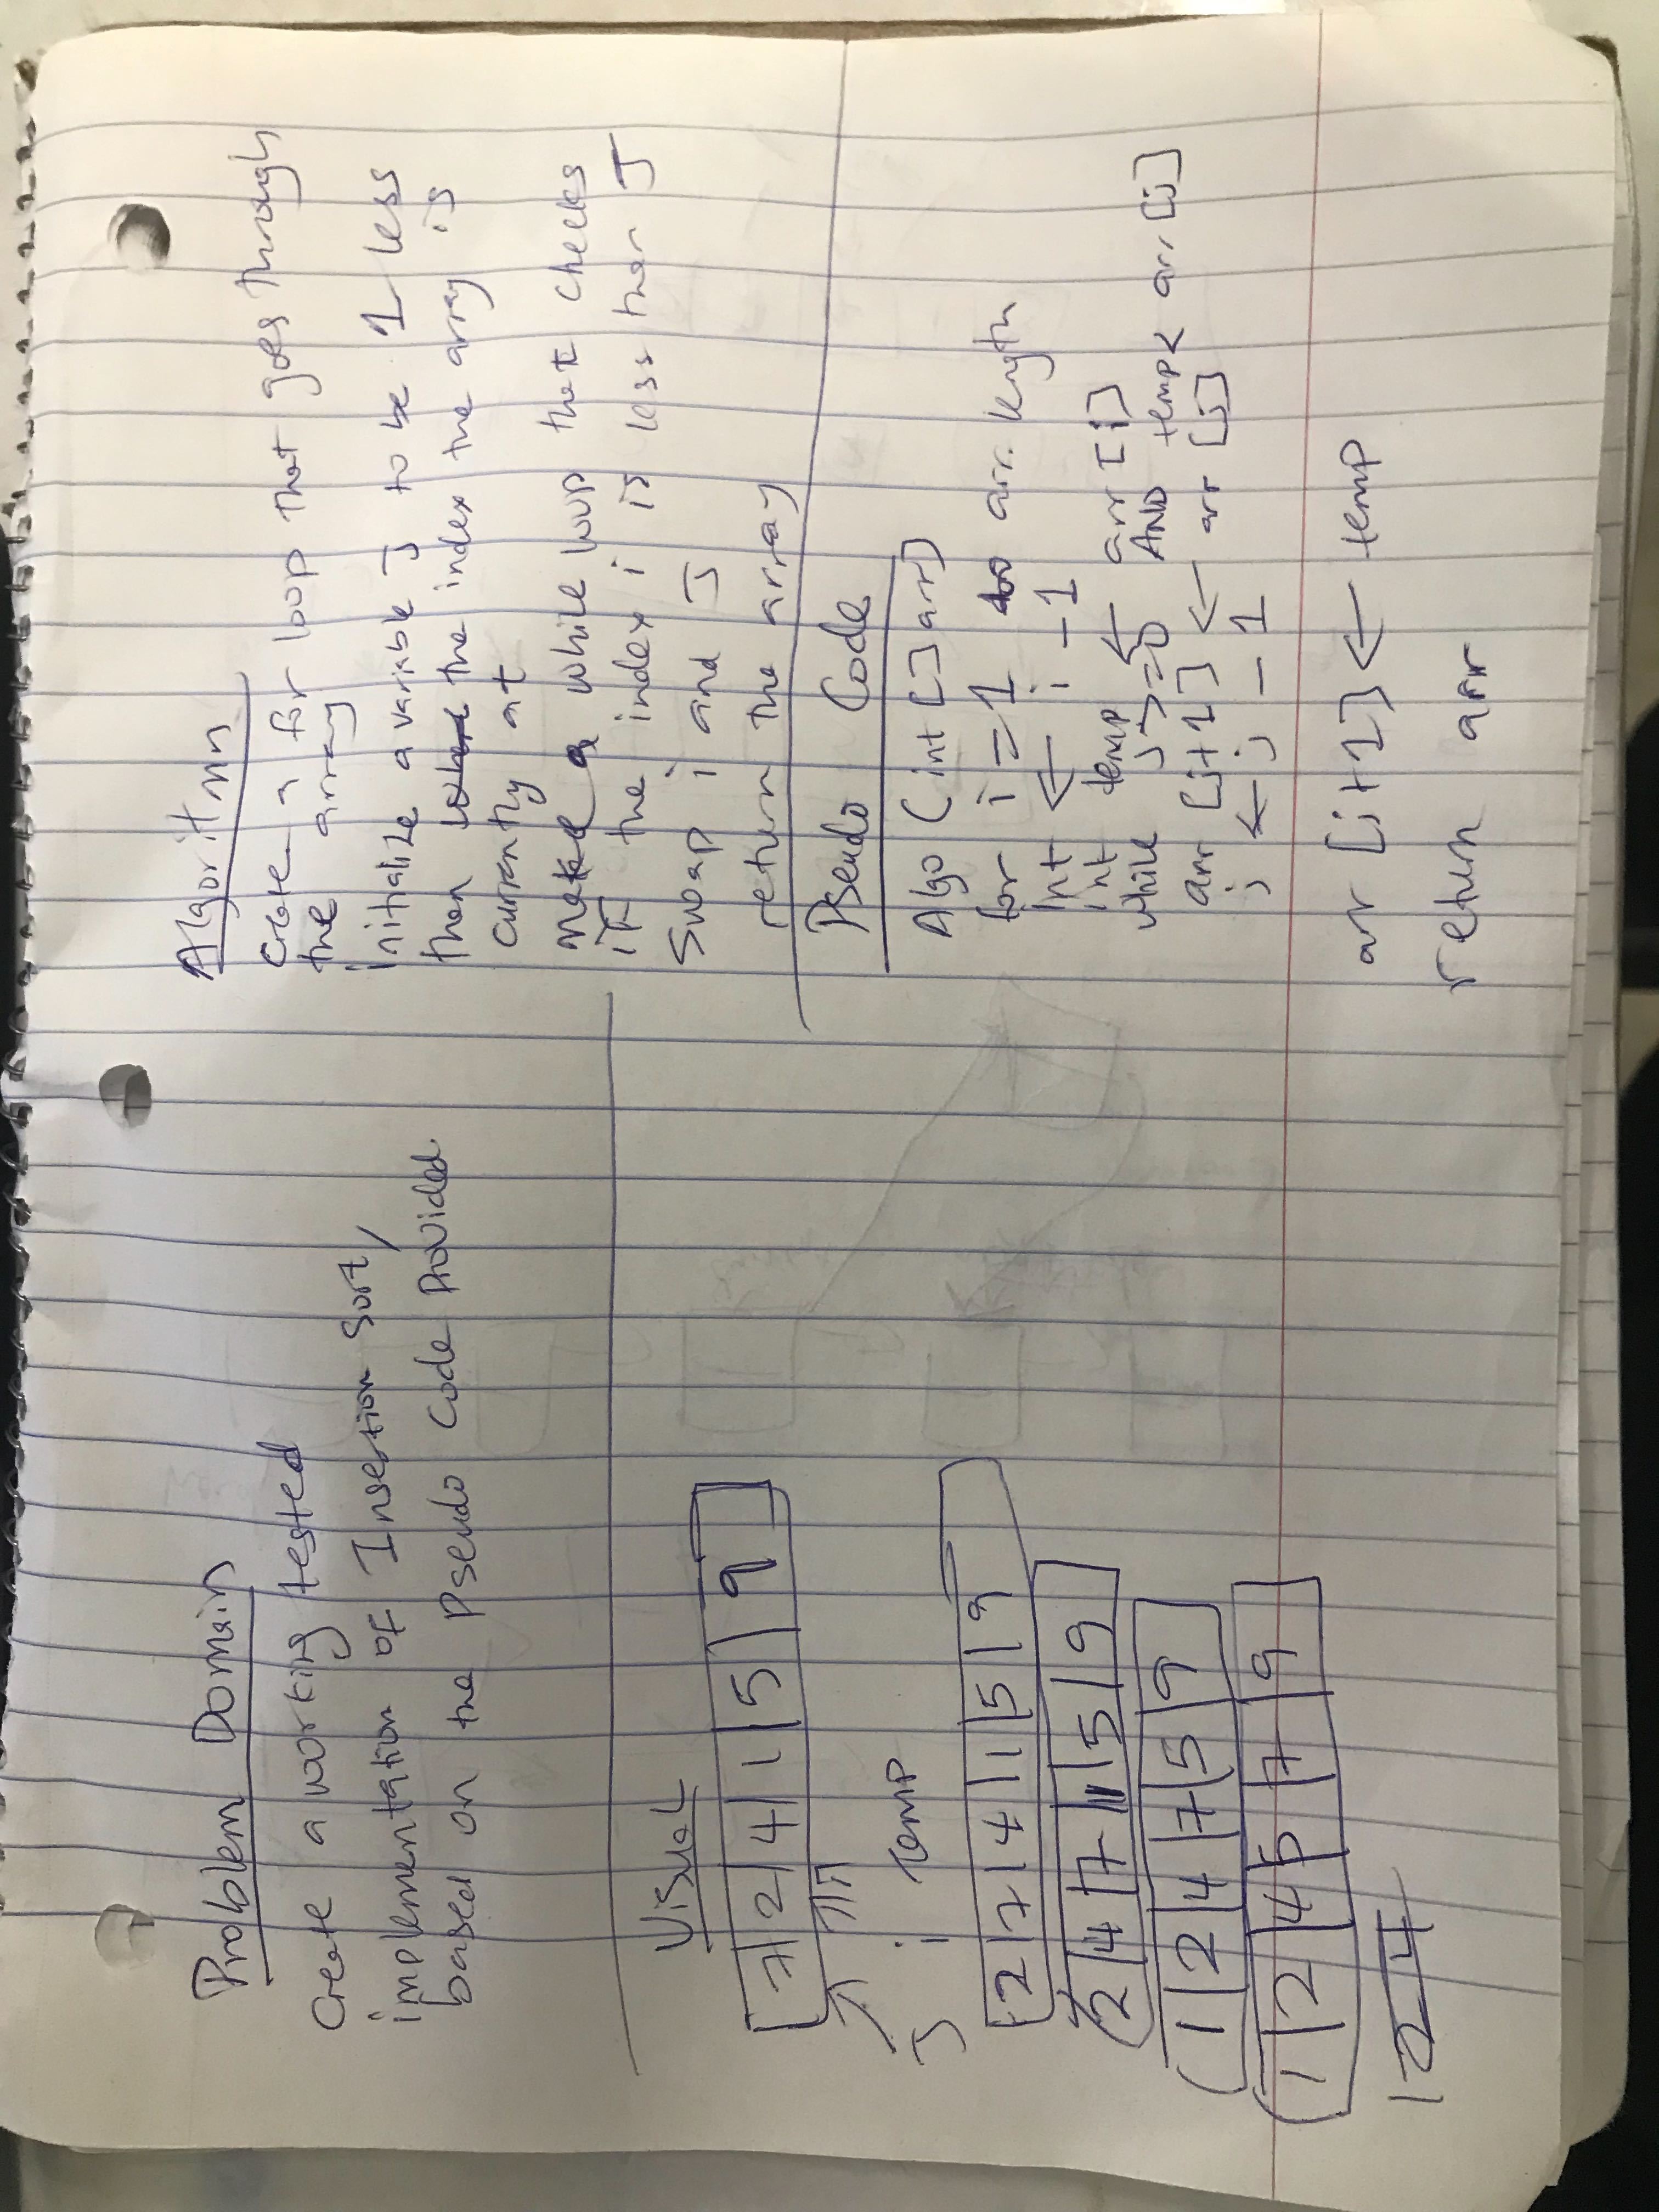 Problem Domain
Create a working tested
implementation of Insertion Sort,
based on the Pseudo Code Provided
Visual
7 | 2 | 4 | 1 | 5 | 9
j i Temp
2 | 7 | 4 | 1 | 5 | 9
2 | 4 | 7 | 1 | 5 | 9
1 | 2 | 4 | 7 | 5 | 9
1 | 2 | 4 | 5 | 7 | 9
1 2 4
Algorithm
Create a for loop that goes through
the array
initialize a variable J to be 1 less
then the index the array is
currently at
make a while loop that checks
if the index i is less then J
Swap i and J
return the array
Pseudo Code
Algo (int [] arr)
for i = 1 to arr. length
Int j ← i - 1
int temp ← arr [i]
while j >= 0 AND temp < arr [j]
arr [j+1] ← arr [j]
j ← j - 1
arr [j+1] ← temp
return arr